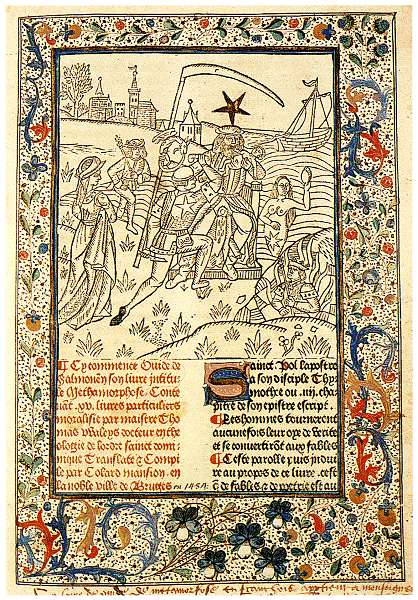 ¶ Cy commence Ouide de
Salmonen son livre intitu-
le Methamorphose. Conte
nāt .xv. livres particuliers
moralisie par maistre Tho
mas Waleys docteur en the
ologie de lordre saint domi
nique Translate & Compi
le par Colard mansion. en
la noble ville de Bruges ou 1484.
Sainct Pol lapostre
a son disciple Thy
mothee ou .iiij. cha
pitre de son epistre escript.
¶ Les hommes tourneront
aucunefois leur oye de verite
et se convertirōt aux fables
¶ Ceste parolle puis indui
re au propos de ce livre. cest
q̄ de fables. & de poetrie est au
de metamorfose en franchois appertient a